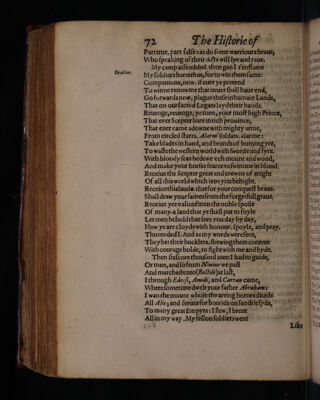 72 The Historie of
Part true, part false: as do some warriours braue,
Who speaking of their Acts will lye and raue.
My camp assembled, then gan I t'enflame
Oration.
My soldiers harts thus, for to win them fame:
Companions, now, if euer ye pretend
To winne renowme that neuer shall haue end,
Go forwards now, plague these inhumain Lands,
That on our sacred Legats layd their hands.
Reuenge, reuenge, ye men, your most high Prince,
That euer Scepter bare in rich prouince,
That euer came adowne with mighty arme,
From circled starrs, Alarm' soldiars: alarme:
Take blades in hand, and brands of burning yre,
To waste the western world with sworde and fyre.
With bloody seas bedewe ech mount and wood,
And make your horses fearce to swim in flood:
Receiue the Scepter great and crowne of might
Of all this world which into you behight.
Receiue this laud that for your conquest braue
Shall draw your fames from the forgetfull graue.
Receiue ye valiant men the noble spoile
Of many a land that ye shall put to foyle
Let men behold that sees you day by day,
How ye are cloyde with honour, spoyle, and pray.
Thus ended I. And as my words were sere,
They bet their bucklers, shewing them content
With courage bolde, to fight with me and byde.
Then sixscore thousand men I had to guide,
Or moe, and so from Niniue we past
And marched vnto (Bactria) at last,
I through Edessa, Amida, and Carran came,
Where sometime dwelt your father Abraham:
I wan the mount whose thwarting hornes diuids
All Asie, and serues for bounds on sundrie syds,
To many great Empyrs: I slew, I brent
All in my way. My fellon soldiers went
Like